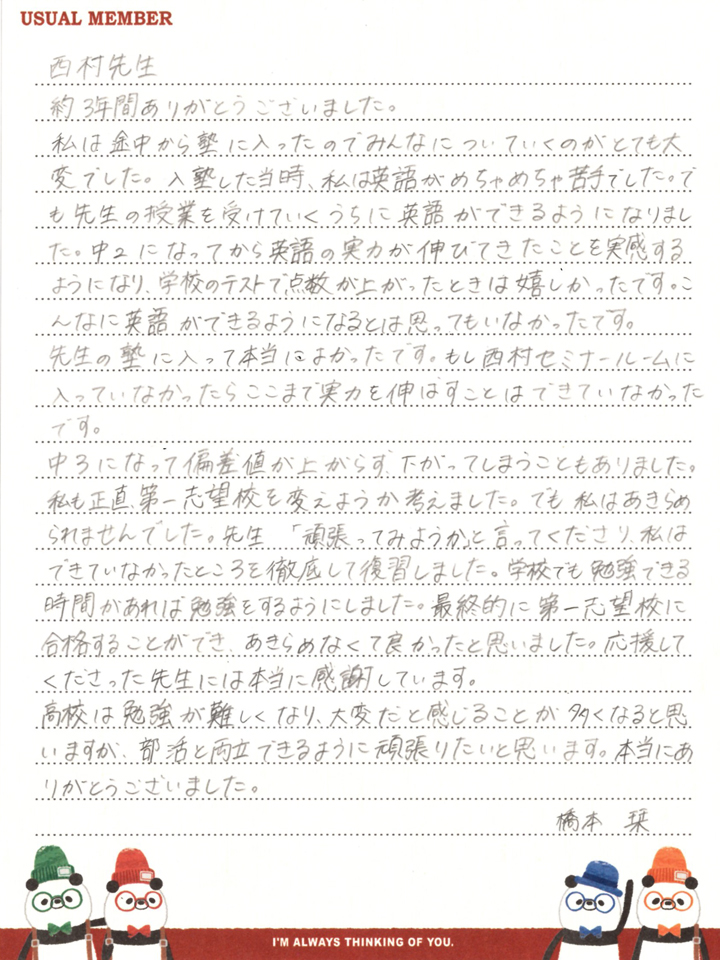 USUAL MEMBER
西村先生
約3年間ありがとうございました。
私は途中から塾に入ったのでみんなについていくのがとても大
変でした。入塾した当時、私は英語がめちゃめちゃ苦手でした。で
も先生の授業を受けていくうちに英語ができるようになりまし
た。中2になってから英語の実力が伸びてきたことを実感する
ようになり、学校のテストで点数が上がったときは嬉しかったです。こ
んなに英語ができるようになるとは思ってもいなかったです。
先生の塾に入って本当によかったです。もし西村セミナールームに
入っていなかったらここまで実力を伸ばすことはできていなかった
です。
中3になって偏差値が上がらず、下がってしまうこともありました。
私も正直、第一志望校を変えようか考えました。でも私はあきらめ
られませんでした。先生「頑張ってみようか」と言ってくださり、私は
できていなかったところを徹底して復習しました。学校でも勉強できる
時間があれば勉強をするようにしました。最終的に第一志望校に
合格することができ、あきらめなくて良かったと思いました。応援して
くださった先生には本当に感謝しています。
高校は勉強が難しくなり、大変だと感じることが多くなると思
いますが、部活と両立できるように頑張りたいと思います。本当にあ
りがとうございました。
橋本 栞
I'M ALWAYS THINKING OF YOU.